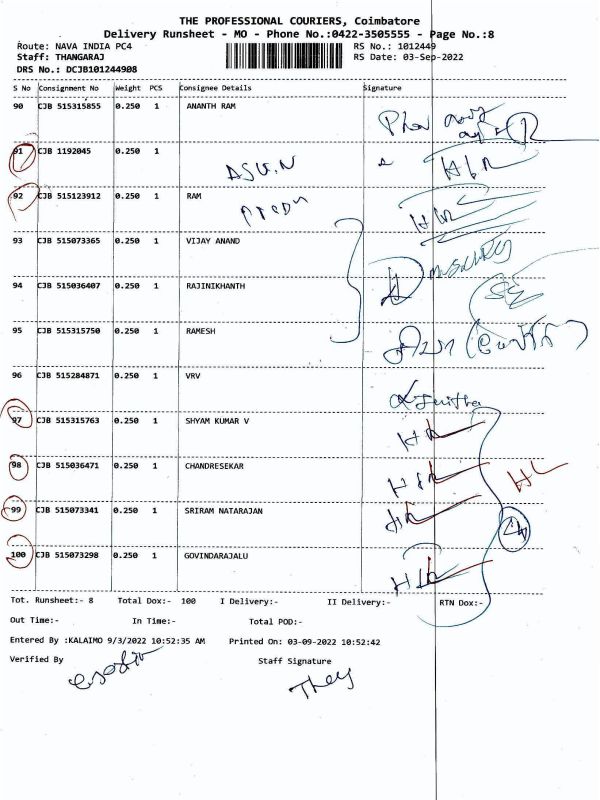 THE PROFESSIONAL COURIERS, Coimbatore
Delivery Runsheet - MO - Phone No.:0422-3505555 - Page No.:8
Route: NAVA INDIA PC4 RS No.: 1012449
Staff: THANGARAJ RS Date: 03-Sep-2022
DRS No.: DCJB101244908
S No Consignment No Weight PCS Consignee Details Signature
90 CJB 515315855 0.250 1 ANANTH RAM
91 CJB 1192045 0.250 1
92 CJB 515123912 0.250 1 RAM
93 CJB 515073365 0.250 1 VIJAY ANAND
94 CJB 515036407 0.250 1 RAJINIKHANTH
95 CJB 515315750 0.250 1 RAMESH
96 CJB 515284871 0.250 1 VRV
97 CJB 515315763 0.250 1 SHYAM KUMAR V
98 CJB 515036471 0.250 1 CHANDRESEKAR
99 CJB 515073341 0.250 1 SRIRAM NATARAJAN
100 CJB 515073298 0.250 1 GOVINDARAJALU
Tot. Runsheet:- 8 Total Dox:- 100 I Delivery:- II Delivery:- RTN Dox:-
Out Time:- In Time:- Total POD:-
Entered By :KALAIMO 9/3/2022 10:52:35 AM Printed On: 03-09-2022 10:52:42
Verified By Staff Signature